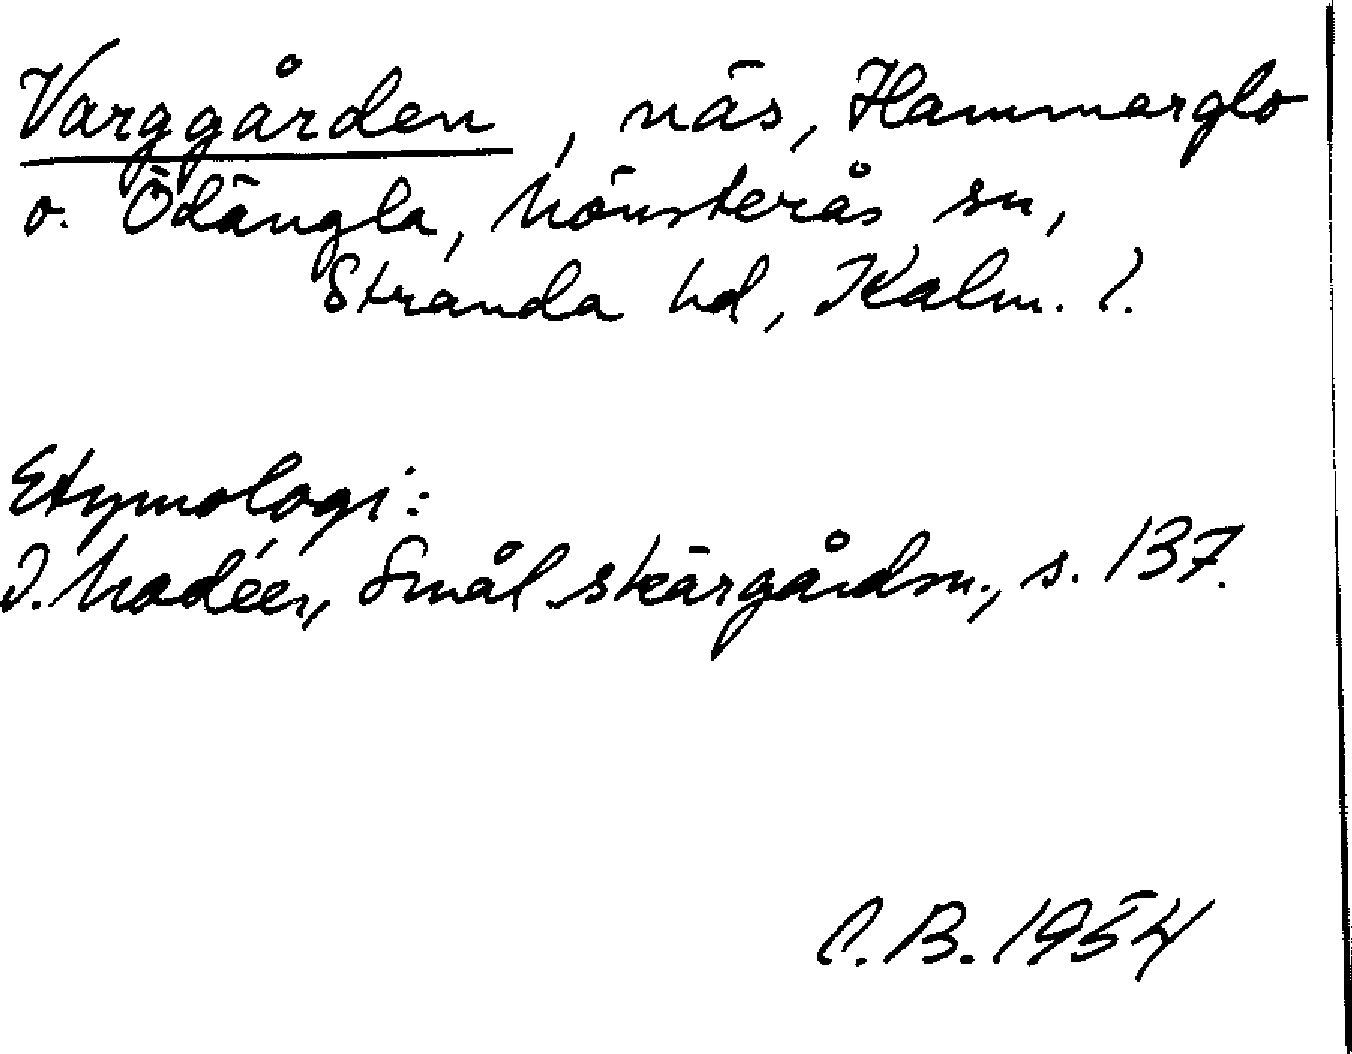 Varggården, näs, Hammarglo
o. Ödängla, Mönsterås sn,
Stranda hd, Kalm. l.
Etymologi:
I. Modéer, Smål. skärgårdsn., s. 137.
C. B. 1954